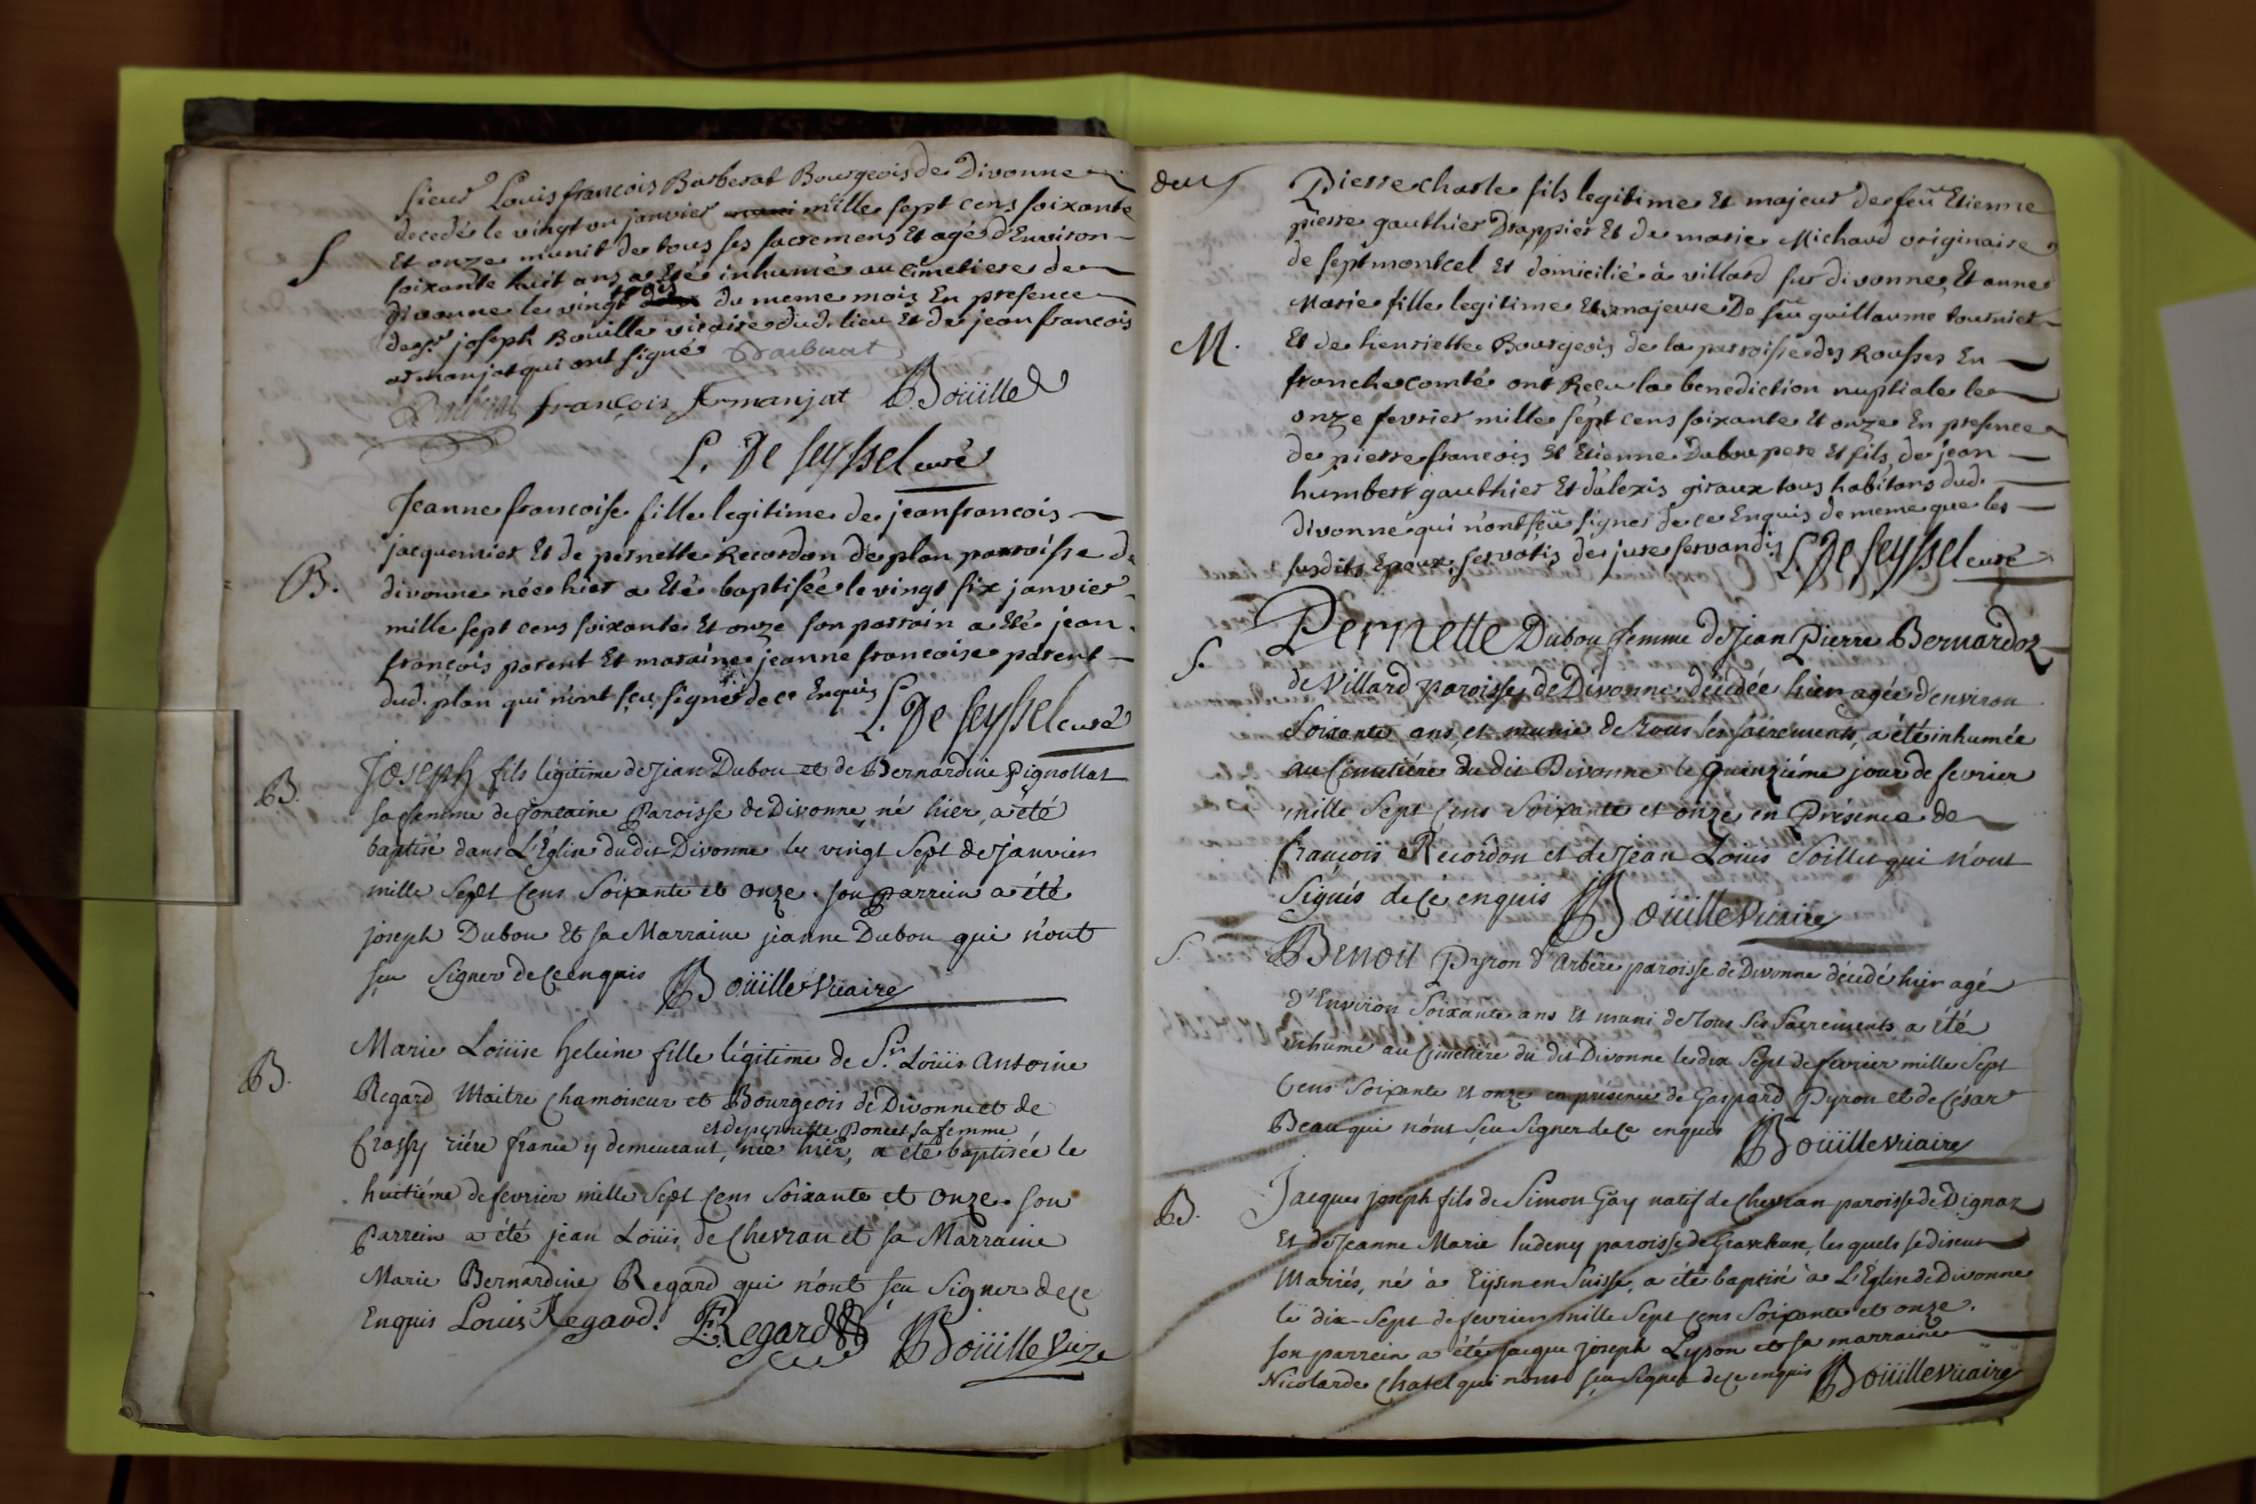 Sieur Louis françois Barberat Bourgeois de Divonne
decedé le vingt un janvier mille sept cens soixante
S
Et onze munit de tous ses sacremens Et agé d'Environ
soixante huit ans a Eté inhumé au cimetiere de
divonne le vingt trois du meme mois En presence
de Sr. joseph Bouille vicaire dud. lieu Et de jean françois
armanjat qui ont signé
françois Armanjat Boüille
L. De Seyssel curé
Jeanne francoise fille legitime de jean francois
jacquemier Et de pernette Recordon de plan parroisse de
B.
divonne née hier a Eté baptisée le vingt six janvier
mille sept cens soixante Et onze son parrain a Eté jean
françois parent Et maraine jeanne francoise parent
dud. plan qui n'ont sçu signer de ce Enquis
L. De Seyssel curé
B.
Joseph fils légitime de Jean Dubou et de Bernardine Pignollat
sa femme de fontaine Paroisse de Divonne, né hier, a été
baptisé dans L'Église du dit Divonne le vingt Sept de janvier
mille Sept Cens Soixante et onze. son parrein a été
joseph Dubou Et sa Marraine jeanne Dubou qui n'ont
sçu Signer de Ce enquis Boüille Vicaire
Marie Loüise heleine fille légitime de Sr. Loüis Antoine
B.
Regard Maitre Chamoiseur et Bourgeois de Divonne et de
et de pernette Poncet sa femme
Crassy riére france y demeurant, née hier, a été baptisée le
huitiéme de fevrier mille Sept Cens Soixante et onze. son
Parrein a été jean Loüis de Chevran et sa Marraine
Marie Bernardine Regard qui n'ont sçu Signer de Ce
Enquis Louis Regard. Regard Boüille Vicre
deux
Pierre charle fils legitime Et majeur de feü Etienne
pierre gauthier Drappier Et de marie Michaud originaire
de septmontcel Et domicilié à villard sur divonne, Et anne
Marie fille legitime Et majeure De feü guillaume tournier
M.
Et de henriette Bourgeois de la parroisse des Rousses En
franche comté ont Reçu la benediction nuptiale le
onze fevrier mille sept cens soixante Et onze En presence
de pierre francois Et Etienne Dubou pere Et fils, de jean
humbert gauthier Et d'alexis giraux tous habitans dud.
divonne qui n'ont sçü signer de ce Enquis de meme que les
susdits Epoux, servatis de jure servandis L. De Seyssel curé
Pernette Dubou femme de Jean Pierre Bernardoz
S.
de Villard paroisse de Divonne, décédée hier agée d'environ
Soixante ans, et munie de tous ses sacrements, a été inhumée
au Cimetiére du dit Divonne le quinziéme jour de fevrier
mille Sept Cens Soixante et onze en Présence de
françois Recordon et de Jean Louis Soillet qui n'ont
Signés de Ce enquis Boüille Vicaire
S.
Benoit Pyron d'Arbére paroisse de Divonne décédé hier agé
d'Environ Soixante ans Et muni de tous ses Sacrements a été
inhumé au Cimetiére du dit Divonne le dix Sept de fevrier mille Sept
Cens Soixante Et onze en présence de Gaspard Pyron et de César
Beau qui n'ont sçu Signer de Ce enquis Boüille Vicaire
B.
Jacques joseph fils de Simon Gay natif de Chevran paroisse de Vignaz
Et de Jeanne Marie ludeny paroisse de les quels se disent
Mariés, né à Eÿsin en Suisse, a été baptisé à L'Église de Divonne
le dix-Sept de fevrier mille Sept Cens Soixante et onze.
son parrein a été jacque joseph Lyson et sa marraine
Nicolarde Chatel qui n'ont sçu Signer de Ce enquis Boüille Vicaire